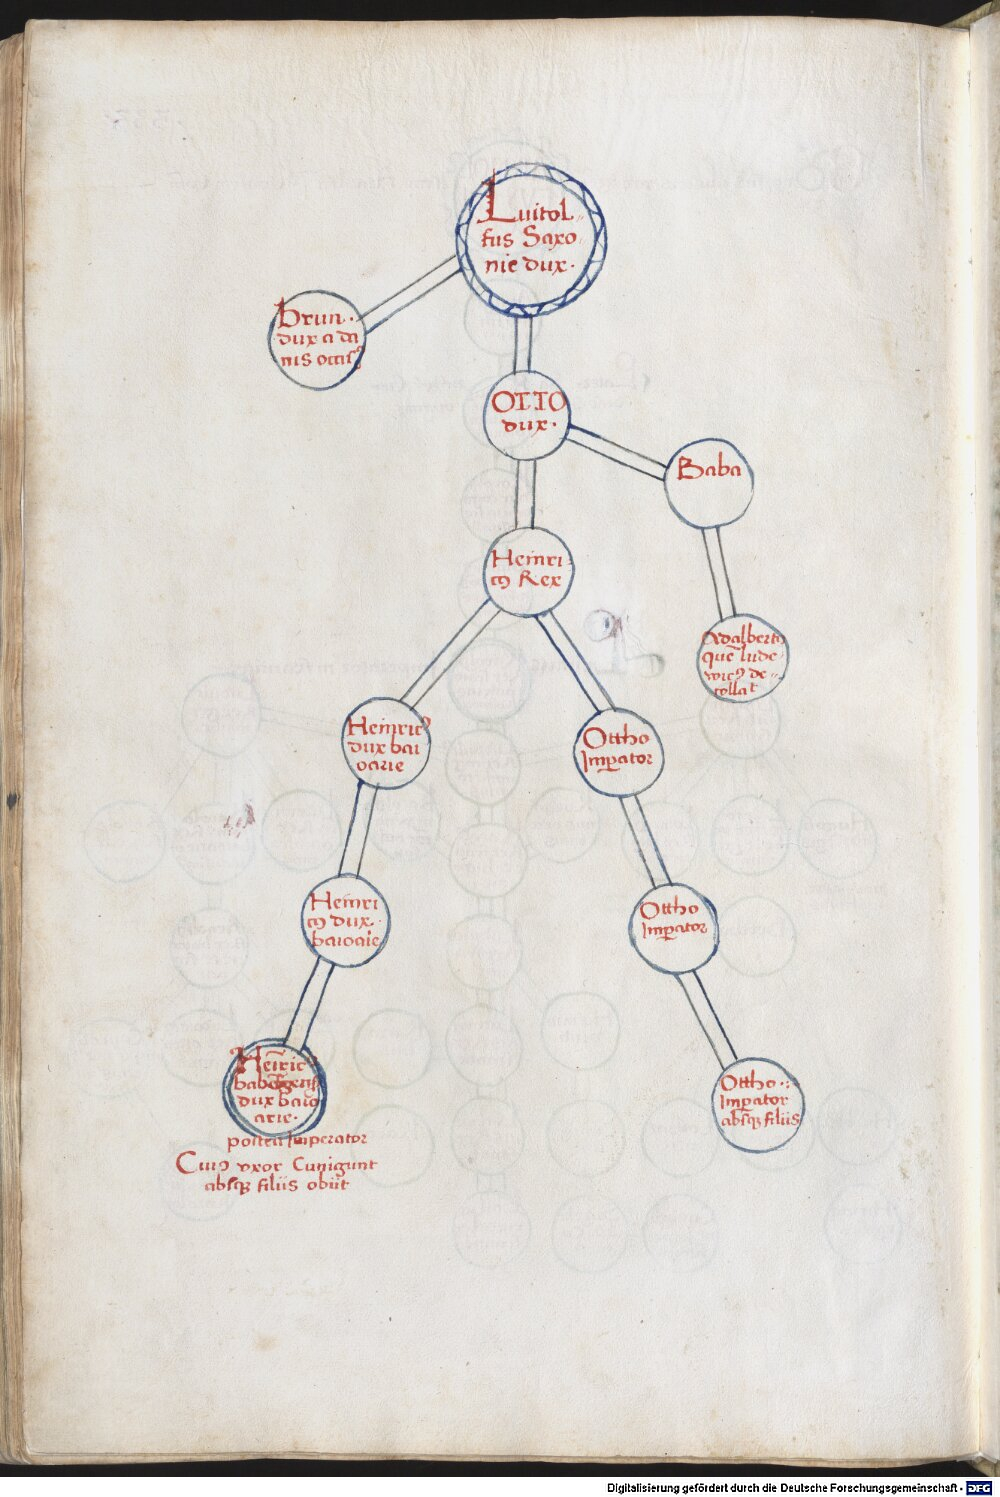 Luitol-
fus Saxo
nie dux.
brun.
dux a da
nis occisꝰ
OTTO
dux.
Baba
Heinri
cꝰ Rex
Adalbertꝰ
quē lude
wicꝰ de-
collat
Heinricꝰ
dux bai
oarie
Ottho
Imꝑator
Heinri
cꝰ dux
baioaꝛie
Ottho
Imꝑator
Heīricꝰ
dux baio
arie.
postea Imperator
Cuiꝰ vxor Cunigunt
absqꝫ filiis obiit
Ottho.:
Imꝑator
absqꝫ filiis
Digitalisierung gefördert durch die Deutsche Forschungsgemeinschaft - DFG